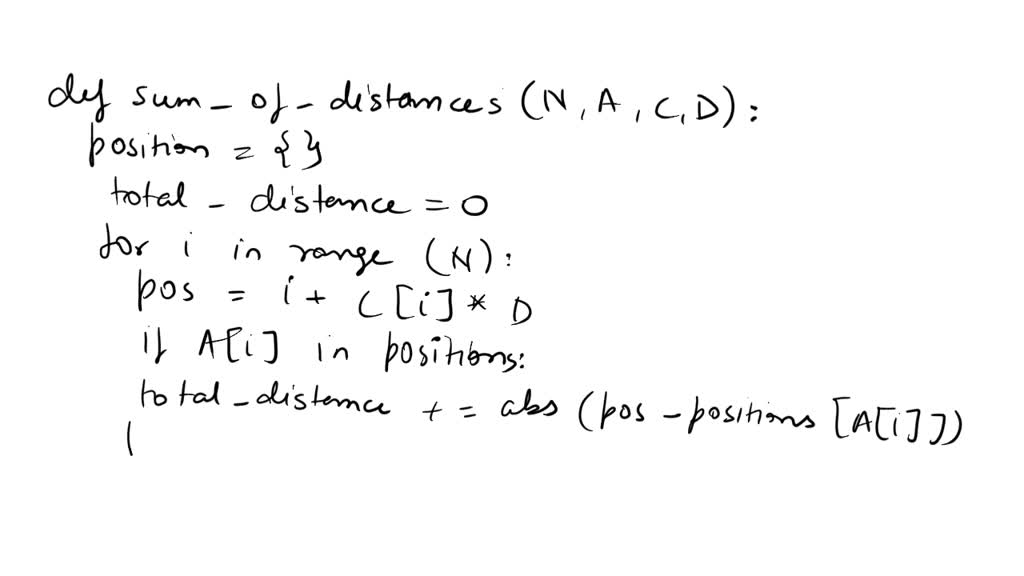 def sum_of_distances (N, A, C, D):
position = {}
total_distance = 0
for i in range (N):
pos = i + C[i] * D
if A[i] in positions:
total_distance += abs (pos - positions [A[i]])